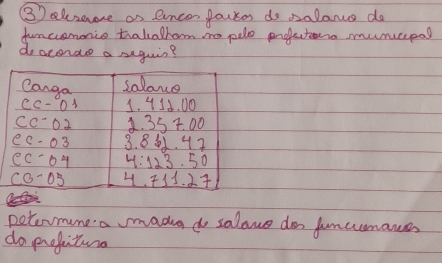 3) observe as cinco faixas de salario de
funcionario trabalham na pela prefeitura municipal
de acordo a seguir?
Carga Salario
CC-01 1.412.00
CC-02 2.357.00
CC-03 3.812.47
CC-04 4.123.50
CC-05 4.711.27
Determine a media do salario dos funcionarios
da prefeitura